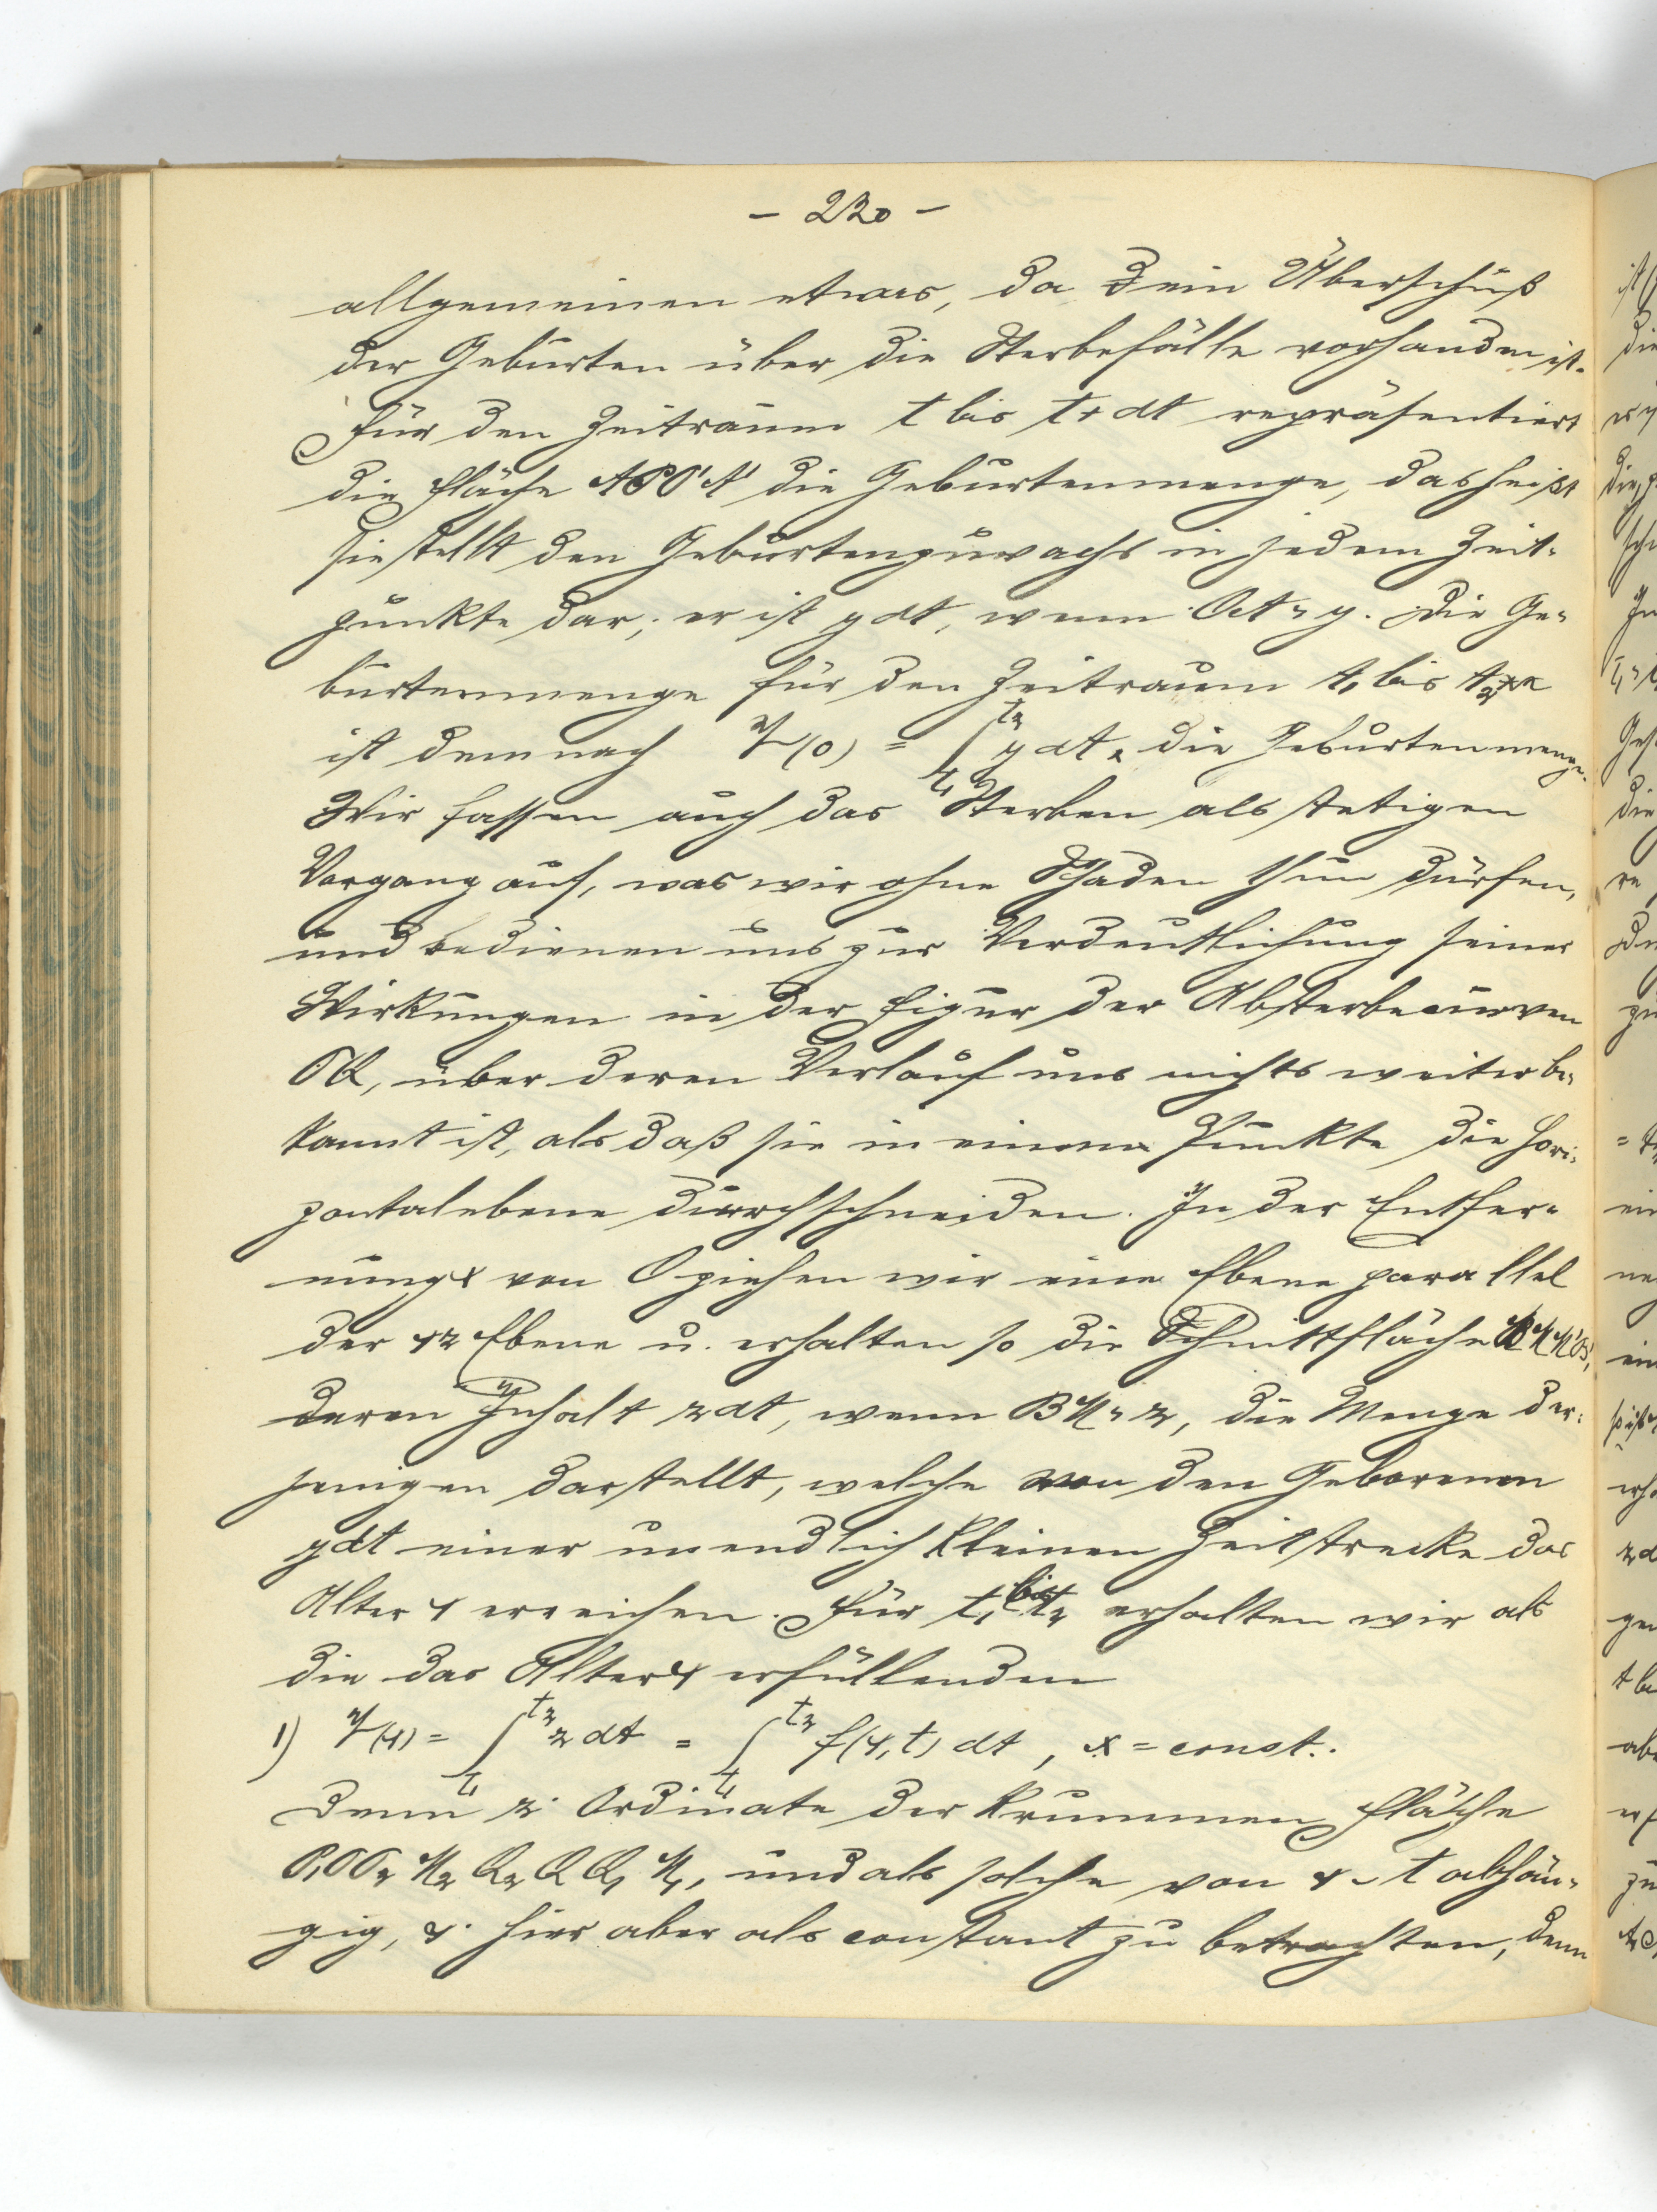 - 220 -
allgemeinen etwas, da ein Überschuß
der Geburten über die Sterbefälle vorhanden ist.
Für den Zeitraum t bis t+dt repräsentiert
die Fläche die Geburtenmenge, das heißt
sie stellt den Geburtenzuwachs in jedem Zeit-
punkte dar; er ist ydt, wenn = y. Die Ge-
burtenmenge für den Zeitraum t₁ bis t₂
ist demnach (0) = ∫ y dt, die Geburtenmenge.
Wir fassen auch das Sterben als stetigen
Vorgang auf, was wir ohne Schaden thun dürfen,
und bedienen uns zur Verdeutlichung seiner
Wirkungen in der Figur der Absterbecurven
über deren Verlauf uns nichts weiter be-
kannt ist, als daß sie in einem Punkte die Hori-
zontalebene durchschneiden. In der Entfer-
nung x von O ziehen wir eine Ebene parallel
der Ebene u. erhalten so die Schnittfläche
deren Inhalt zdt, wenn = z, die Menge der-
jenigen darstellt, welche von den Geborenen
ydt einer unendlich kleinen Zeitstrecke das
Alter x erreichen. Für t₁ bis t₂ erhalten wir als
die das Alter x erfüllenden
1) (x) = ∫ z dt = ∫ f(x,t) dt, x = const.
Denn z Ordinate der krummen Fläche
und als solche von x t abhän-
gig, x hier aber als constant zu betrachten, denn